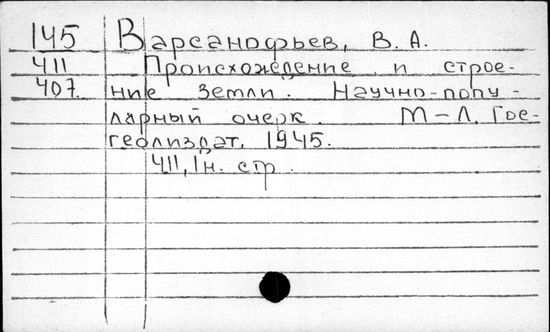 145 Варсанофьев, В. А.
411 Происхождение и строе-
407. ние Земли. Научно-попу-
лярный очерк. М-Л. Гос-
геолиздат, 1945.
411, 1н. стр.